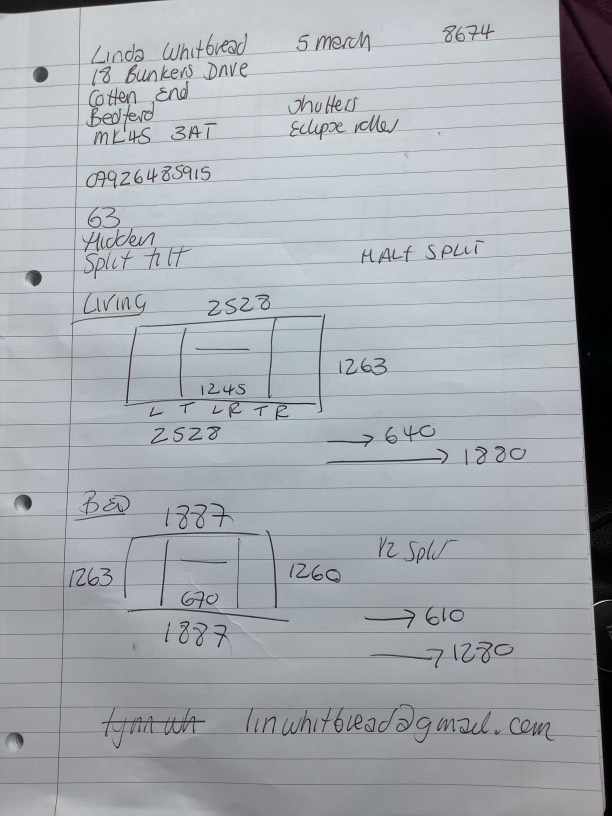 Linda Whitbread 5 march 8674
18 Bunkers Drive
Cotten End
Bedford Shutters
MK45 3AT Eclipse roller
07926485915
63
Hidden
Split tilt HALF SPLIT
Living 2528
1263
1245
L T LR T R
2528 → 640
→ 1880
BED 1887
1/2 Split
1263 1260
670 → 610
1887 → 1280
linwhitbread@gmail.com